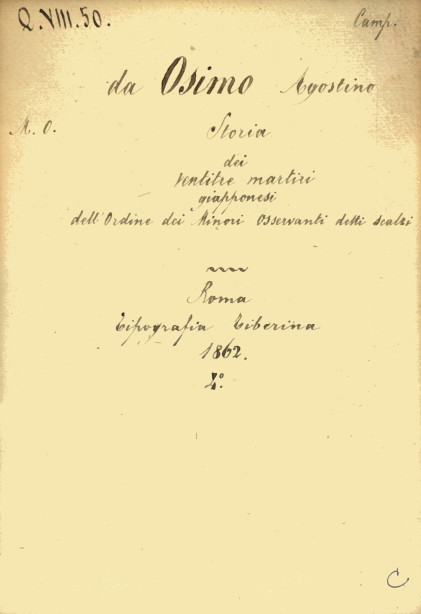 Q.VIII.50.
Camp.
da Osimo Agostino
M. O.
Storia
dei
ventitre martiri
giapponesi
dell'Ordine dei Minori Osservanti detti scalzi
Roma
Tipografia Tiberina
1862.
4.º
C